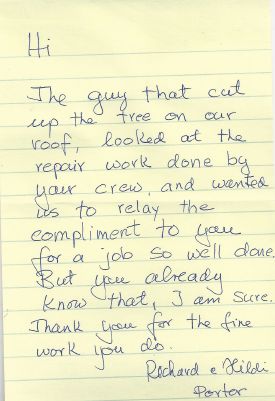 Hi
The guy that cut
up the tree on our
roof, looked at the
repair work done by
your crew, and wanted
us to relay the
compliment to you
for a job so well done.
But you already
know that, I am sure.
Thank you for the fine
work you do.
Richard e Hildi
Porter